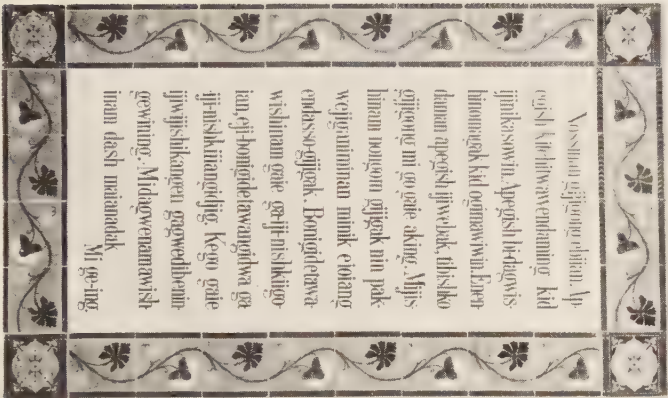 Nossinan gijigong ebiian. Ap-
egish kitchitwawendaming kid
ijinikasowin. Apegish bi-dagwis-
hinomagak kid ogimawiwin. Enen-
daman apegish ijiwebak, tibishko
gijigong mi go gaie aking. Mijis
hinam nongom gijigak nin pak-
wejiganiminan minik eioiang
endasso-gijigak. Bonigidetawa-
wishinam gaie ga-iji-nishkiigo
ian, eji-bonigidetawangidwa ga
iji-nishkiiangidjig. Kego gaie
ijiwijishikangen gagwedibenin-
gewining. Midagwenamawish
inam dash maianadak
Mi ge-ing.